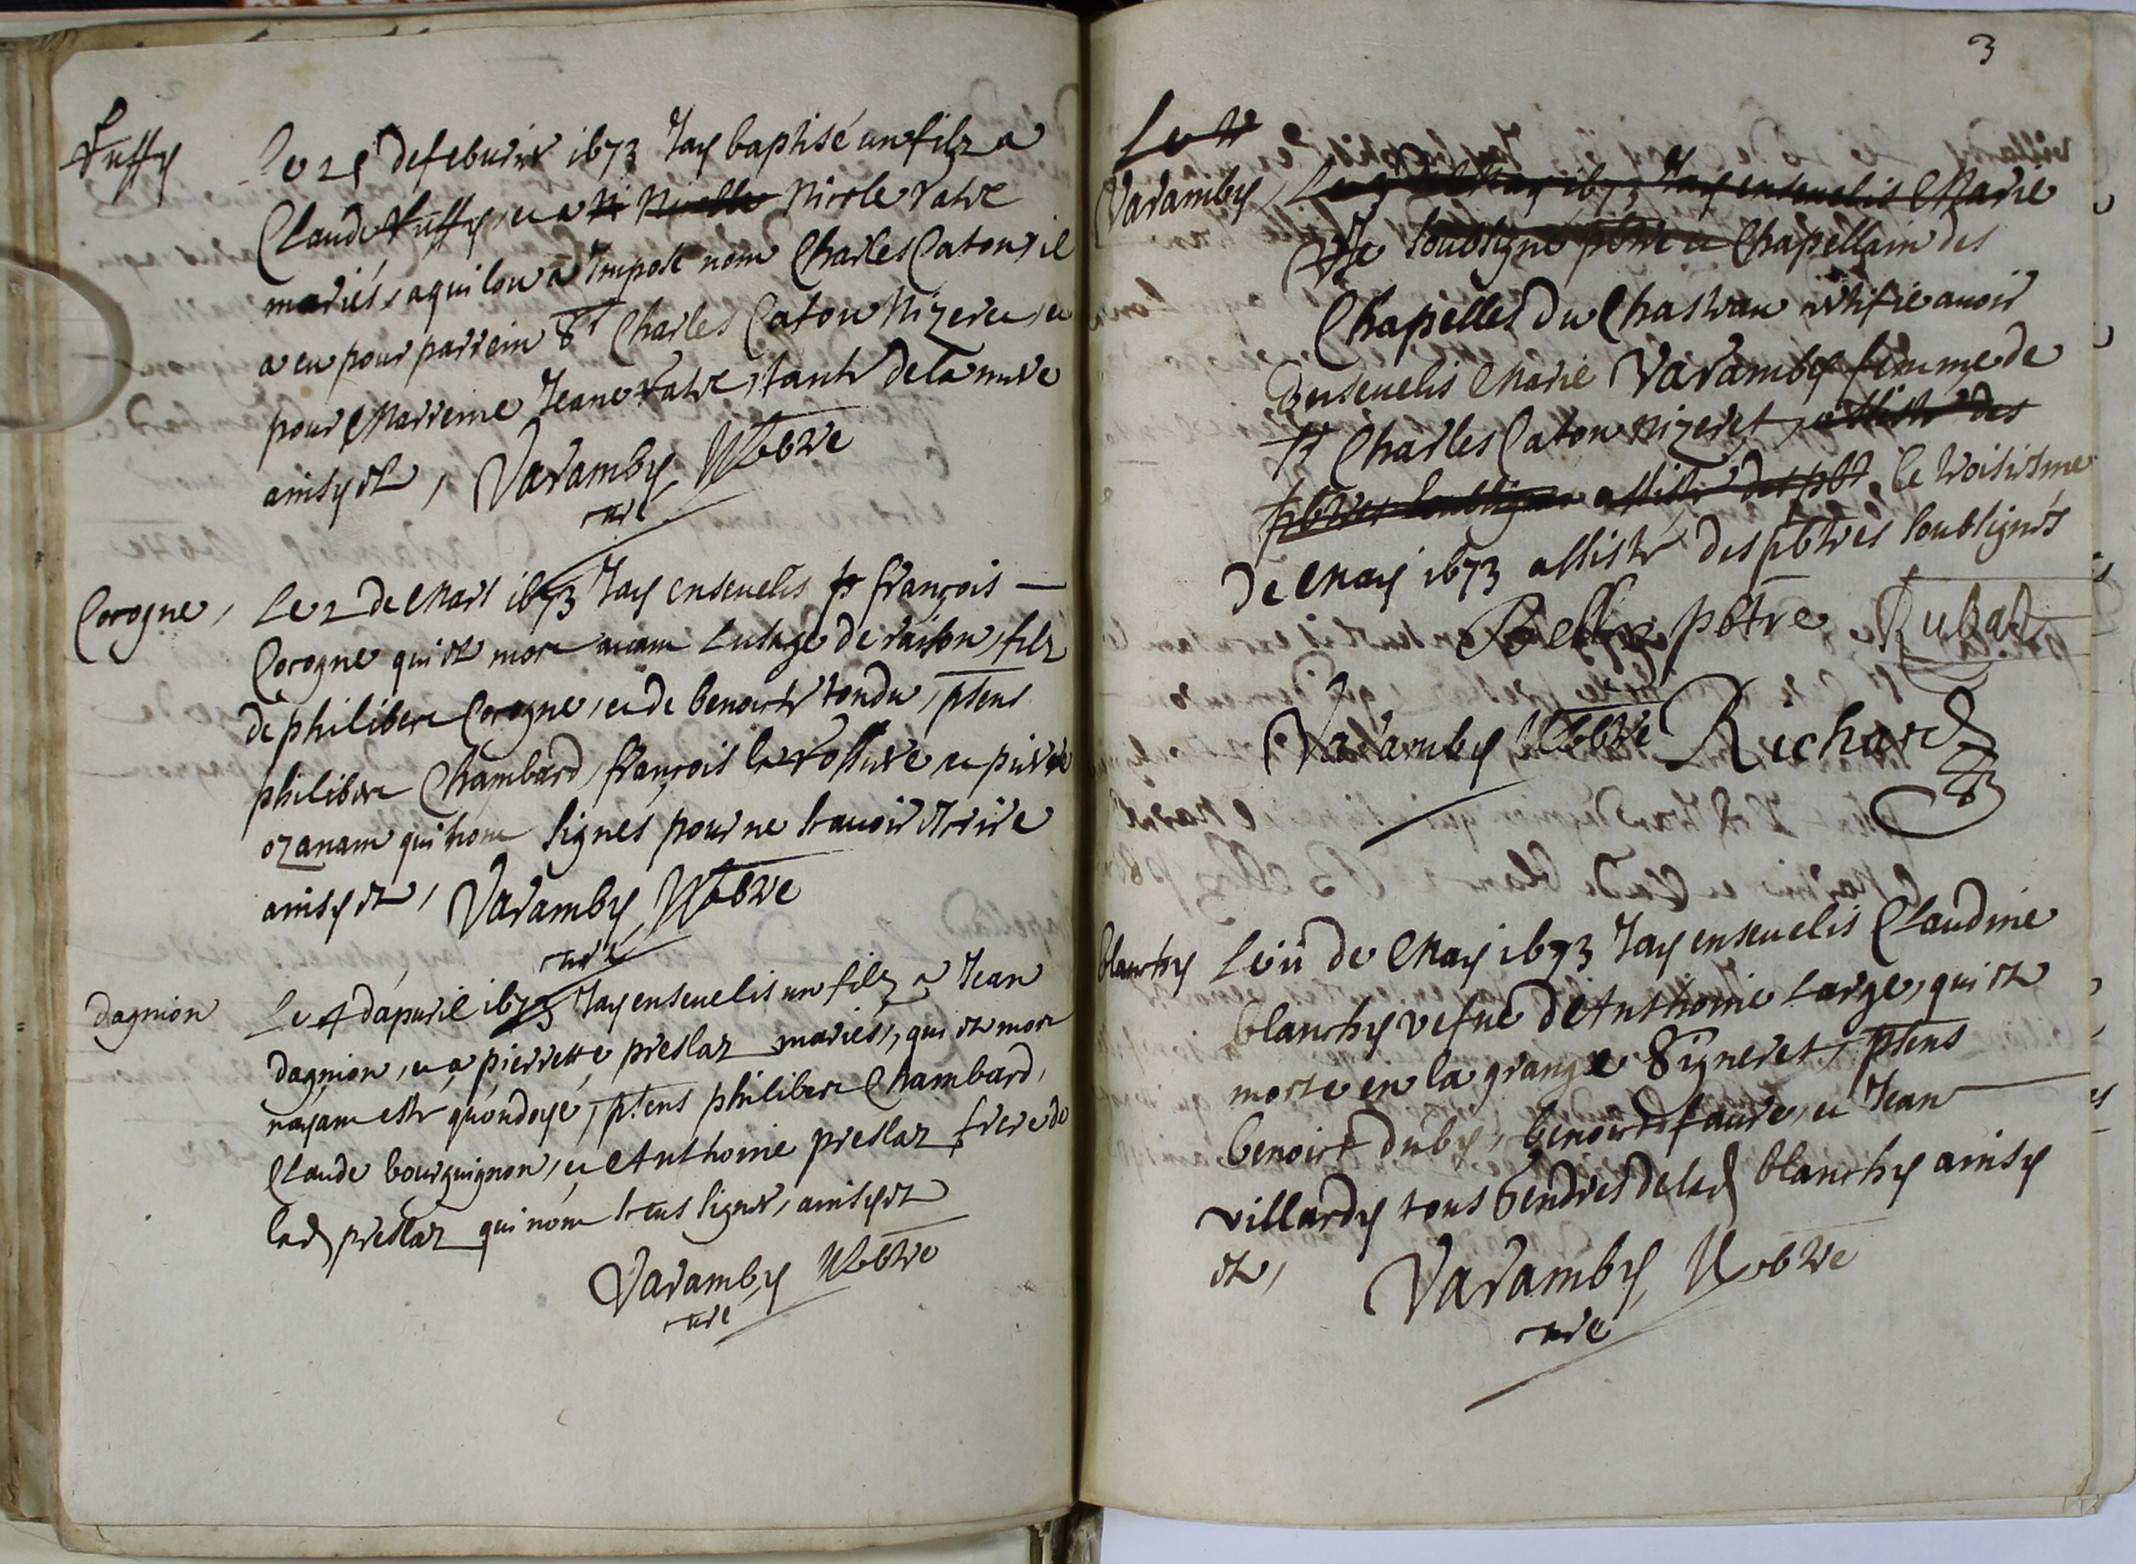 Tuffy
Le 25 de febvrier 1673 Jay baptisé un filz a
Claude Tuffy, et a Ni Nicolle Nicole Vatre
mariés, a qui lon a Imposé nom Charles Caton, il
a eu pour parrein Sr Charles Caton Nizeret, et
pour Marreine Jeane Vatre, tante de la mere
ainsy est, Varamby Ptbre
curé
Corogne, Le 2 de Mars 1673 Jay ensevelis françois
Corogne qui est mort avant lusage de raison, filz
de philibert Corogne, et de benoite tondu, pntens
philibert Chambard, françois la rossure et pierre
ozanam qui nont signés pour ne scavoir escrire
ainsy est, Varamby Ptbre
curé
dagnion Le 4 dapuril 1673 Jay ensevelis un filz a Jean
dagnion, et a pierrette preslaz mariés, qui est mort
nayant esté quondoyé, pntens philibert Chambard,
Claude bourguignon, et Anthoine preslaz frere de
lad preslaz qui nont sceus signer, ainsy est
Varamby Ptbre
curé
3
Le
Varamby, Le 3 de May 1673 Jay ensevelis Marie
Je soubsigné pbtre et Chapellain des
Chapelles du Chasteau certifie avoir
Ensevelis Marie Varamby femme de
Sr Charles Caton Nizeret, assisté des
pbtres soubsignes assisté des pbt. le troisiesme
de May 1673 assisté des pbtres soubsignés
pbtre Rubat
Varamby Ptbre Richard
blanchy Le 11 de May 1673 Jay ensevelis Claudine
blanchy vefue d'Anthoine Large, qui est
morte en la grange Signeret, pntens
benoist duby, benoist faure, et Jean
villardy tous gendres de lad blanchy ainsy
est, Varamby Ptbre
curé